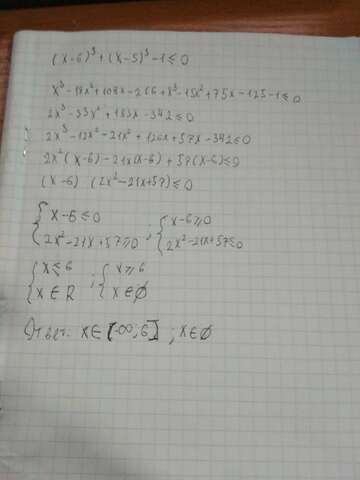 (x-6)³+(x-5)³-1≤0
x³-18x²+108x-216+x³-15x²+75x-125-1≤0
2x³-33x²+183x-342≤0
2x³-12x²-21x²+126x+57x-342≤0
2x²(x-6)-21x(x-6)+57(x-6)≤0
(x-6) (2x²-21x+57)≤0
{x-6≤0 ; {x-6≥0
{2x²-21x+57≥0 {2x²-21x+57≤0
{x≤6 ; {x≥6
{x∈R {x∈∅
Ответ: x∈[-∞;6] ; x∈∅